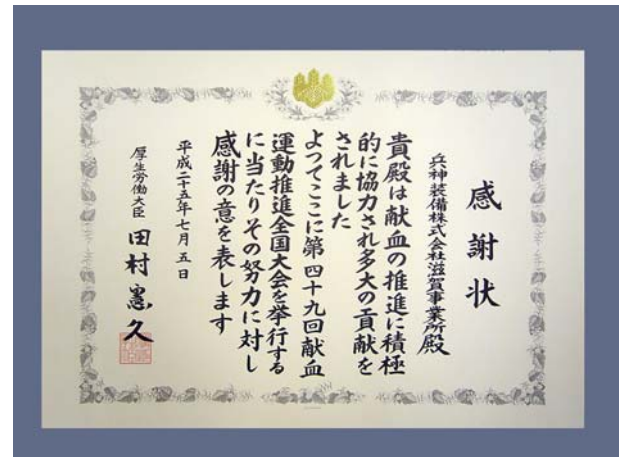 感謝状
兵神装備株式会社滋賀事業所殿
貴殿は献血の推進に積極
的に協力され多大の貢献を
されました
よってここに第四十九回献血
運動推進全国大会を挙行する
に当たりその努力に対し
感謝の意を表します
平成二十五年七月五日
厚生労働大臣 田村憲久